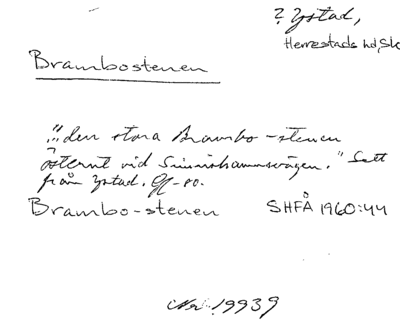 ? Ystad,
Herrestads hd, Sk
Brambostenen
"den stora Brambo-stenen
österut vid Simrishamnsvägen." Sett
från Ystad.
Brambo-stenen SHFÅ 1960:44
19939